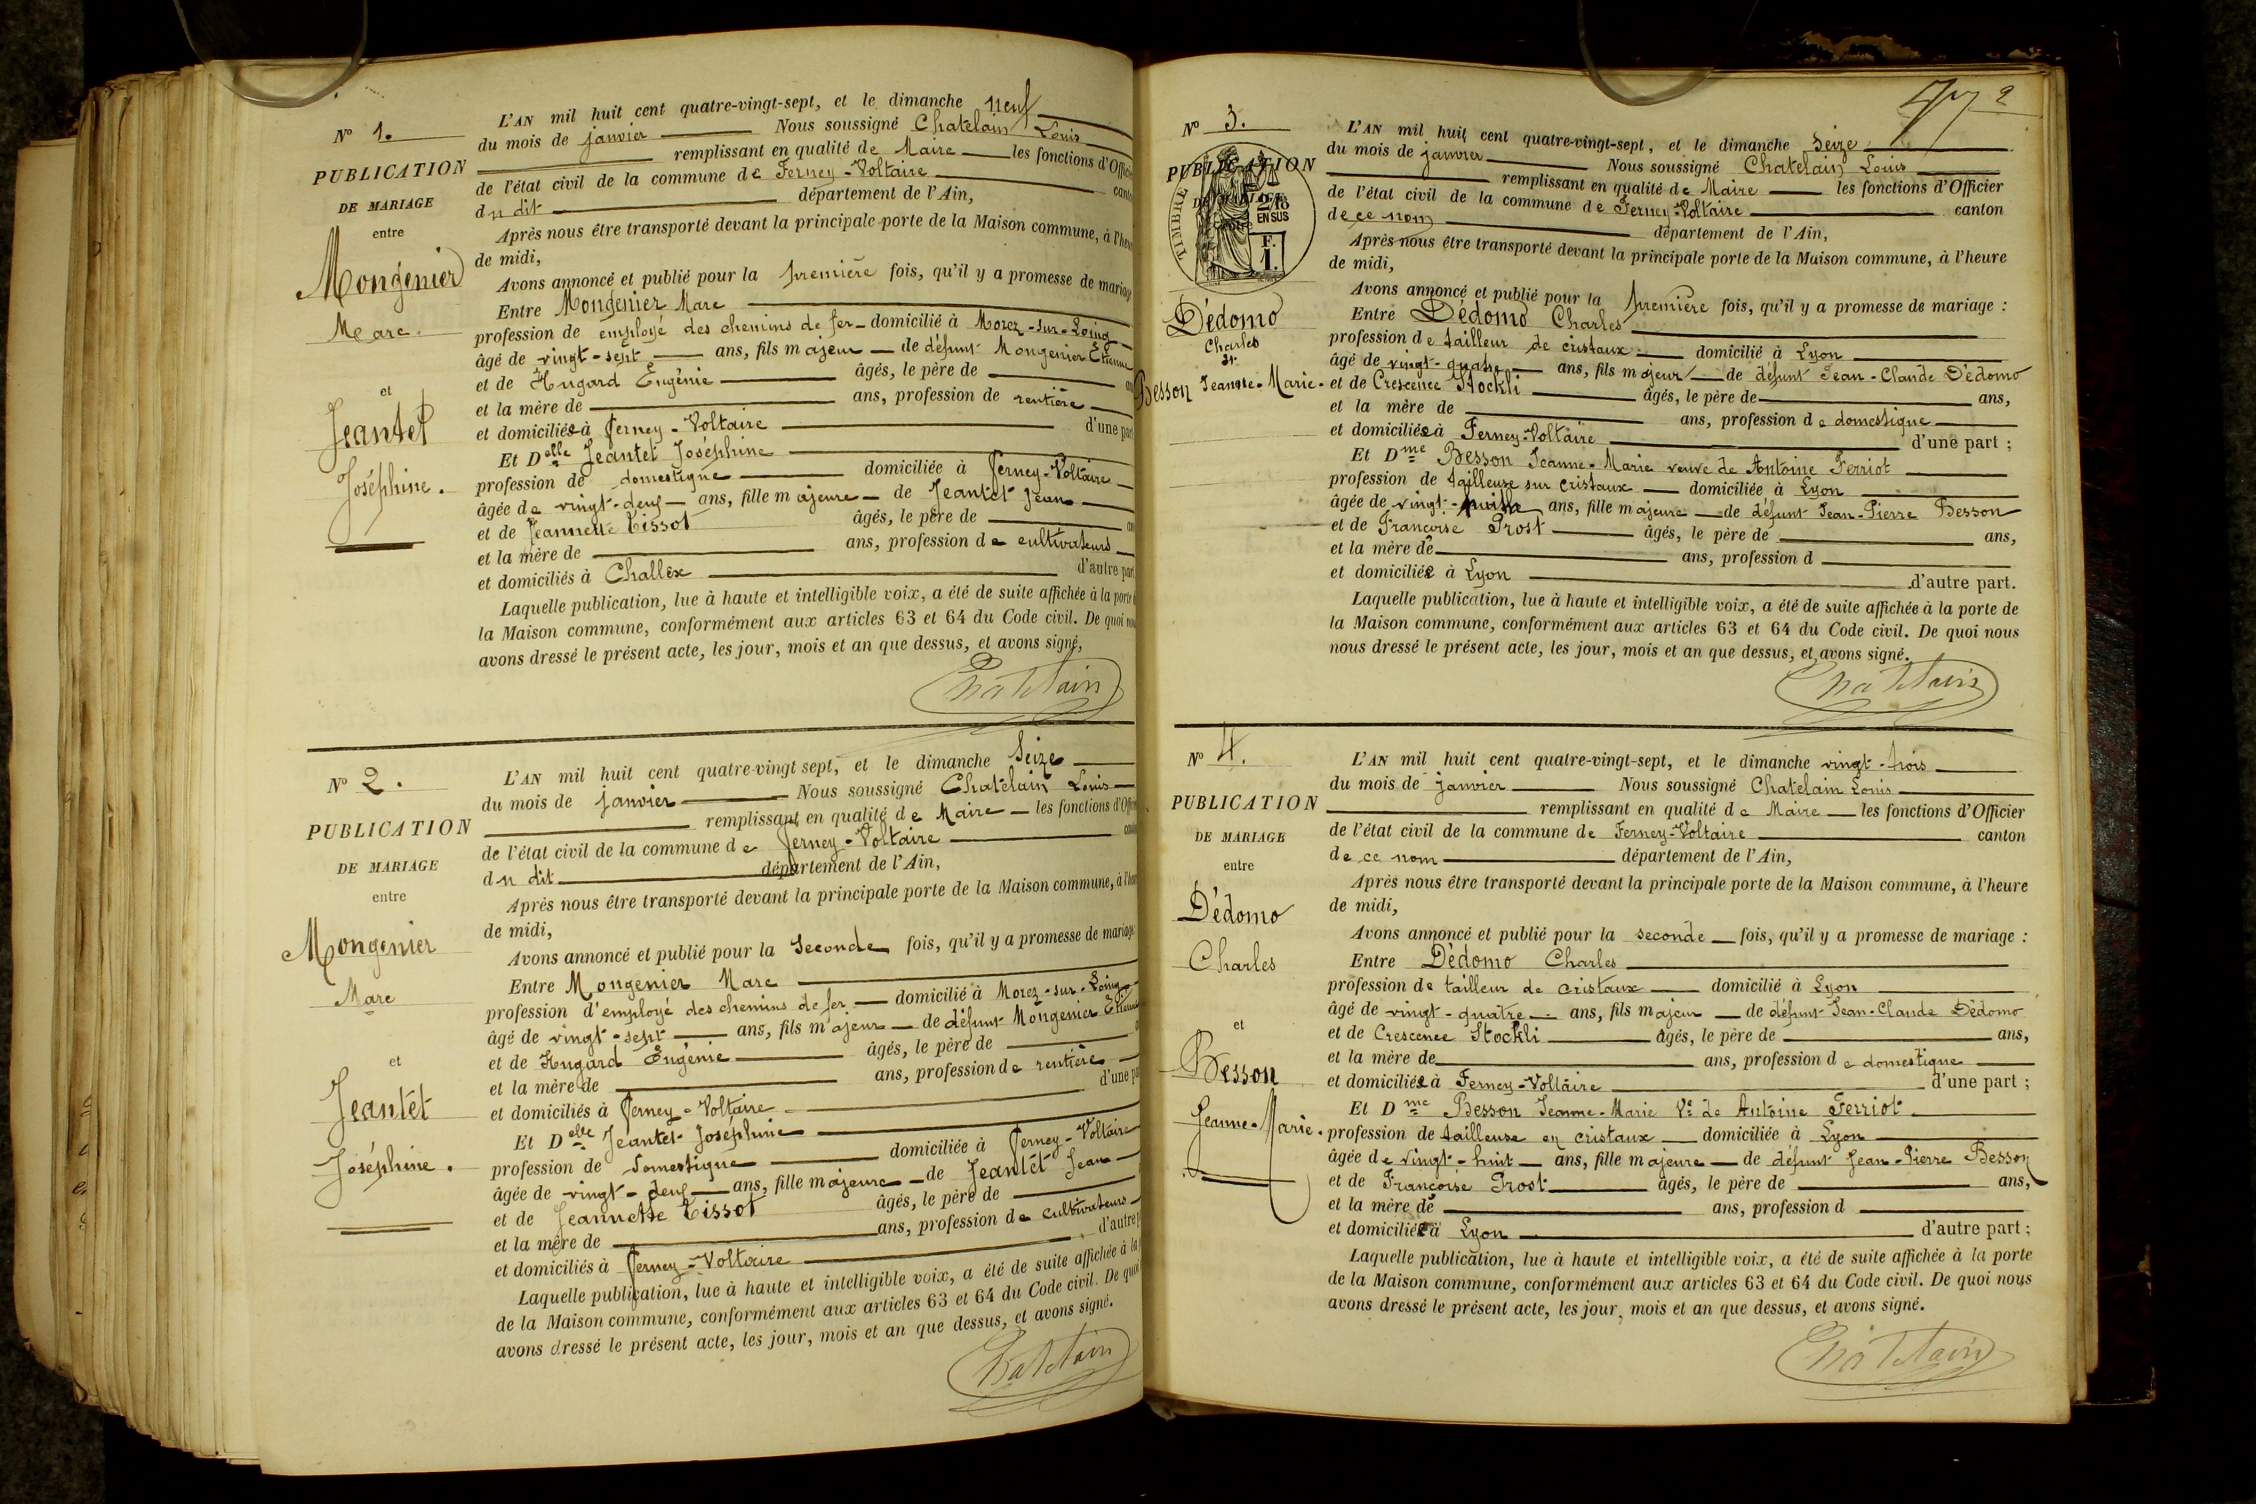 N° 1.
PUBLICATION
DE MARIAGE
entre
Mongenier
Marc.
et
Jeantet
Joséphine.
L'AN mil huit cent quatre-vingt-sept, et le dimanche neuf
du mois de janvier Nous soussigné Chatelain Louis
remplissant en qualité de Maire les fonctions d'Offici
de l'état civil de la commune de Ferney-Voltaire canto
du dit département de l'Ain,
Après nous être transporté devant la principale porte de la Maison commune, à l'heure
de midi,
Avons annoncé et publié pour la première fois, qu'il y a promesse de mariage
Entre Mongenier Marc
profession de employé des chemins de fer domicilié à Morez-sur-Loing
âgé de vingt-sept ans, fils majeur de défunt Mongenier Etienne
et de Hugard Eugénie âgés, le père de an
et la mère de ans, profession de rentière
et domiciliés à Ferney-Voltaire d'une part
Et Delle Jeantet Joséphine
profession de domestique domiciliée à Ferney-Voltaire
âgée de vingt-deux ans, fille majeure de Jeantet Jean
et de Jeannette Tissot âgés, le père de an
et la mère de ans, profession de cultivateurs
et domiciliés à Challex d'autre part
Laquelle publication, lue à haute et intelligible voix, a été de suite affichée à la porte d
la Maison commune, conformément aux articles 63 et 64 du Code civil. De quoi nou
avons dressé le présent acte, les jour, mois et an que dessus, et avons signé,
Chatelain
N° 2.
PUBLICATION
DE MARIAGE
entre
Mongenier
Marc
et
Jeantet
Joséphine.
L'AN mil huit cent quatre-vingt sept, et le dimanche Seize
du mois de janvier Nous soussigné Chatelain Louis
remplissant en qualité de Maire les fonctions d'Offici
de l'état civil de la commune de Ferney-Voltaire canto
du dit département de l'Ain,
Après nous être transporté devant la principale porte de la Maison commune, à l'heur
de midi,
Avons annoncé et publié pour la Seconde fois, qu'il y a promesse de mariage
Entre Mongenier Marc
profession d'employé des chemins de fer domicilié à Morez-sur-Loing
âgé de vingt-sept ans, fils majeur de défunt Mongenier Etienne
et de Hugard Eugénie âgés, le père de
et la mère de ans, profession de rentière
et domiciliés à Ferney-Voltaire d'une pa
Et Delle Jeantet Joséphine
profession de domestique domiciliée à Ferney-Voltaire
âgée de vingt-deux ans, fille majeure de Jeantet Jean
et de Jeannette Tissot âgés, le père de
et la mère de ans, profession de cultivateurs
et domiciliés à Ferney-Voltaire d'autre p
Laquelle publication, lue à haute et intelligible voix, a été de suite affichée à la
de la Maison commune, conformément aux articles 63 et 64 du Code civil. De quoi
avons dressé le présent acte, les jour, mois et an que dessus, et avons signé.
Chatelain
2
N° 3.
PUBLICATION
DE MARIAGE
entre
TIMBRE
2/10
EN SUS
F.
1.
Dédomo
Charles
et
Besson Jeanne-Marie.
L'AN mil huit cent quatre-vingt-sept, et le dimanche seize
du mois de janvier Nous soussigné Chatelain Louis
remplissant en qualité de Maire les fonctions d'Officier
de l'état civil de la commune de Ferney-Voltaire canton
de ce nom département de l'Ain,
Après nous être transporté devant la principale porte de la Maison commune, à l'heure
de midi,
Avons annoncé et publié pour la première fois, qu'il y a promesse de mariage :
Entre Dédomo Charles
profession de tailleur de cristaux domicilié à Lyon
âgé de vingt-quatre ans, fils majeur de défunt Jean-Claude Dédomo
et de Crescence Stockli âgés, le père de ans,
et la mère de ans, profession de domestique
et domiciliés à Ferney-Voltaire d'une part ;
Et Dme Besson Jeanne-Marie veuve de Antoine Ferriot
profession de tailleuse sur cristaux domiciliée à Lyon
âgée de vingt-huit ans, fille majeure de défunt Jean-Pierre Besson
et de Françoise Prost âgés, le père de ans,
et la mère de ans, profession d
et domiciliés à Lyon d'autre part.
Laquelle publication, lue à haute et intelligible voix, a été de suite affichée à la porte de
la Maison commune, conformément aux articles 63 et 64 du Code civil. De quoi nous
nous dressé le présent acte, les jour, mois et an que dessus, et avons signé.
Chatelain
N° 4.
PUBLICATION
DE MARIAGE
entre
Dédomo
Charles
et
Besson
Jeanne-Marie.
L'AN mil huit cent quatre-vingt-sept, et le dimanche vingt-trois
du mois de janvier Nous soussigné Chatelain Louis
remplissant en qualité de Maire les fonctions d'Officier
de l'état civil de la commune de Ferney-Voltaire canton
de ce nom département de l'Ain,
Après nous être transporté devant la principale porte de la Maison commune, à l'heure
de midi,
Avons annoncé et publié pour la seconde fois, qu'il y a promesse de mariage :
Entre Dédomo Charles
profession de tailleur de cristaux domicilié à Lyon
âgé de vingt-quatre ans, fils majeur de défunt Jean-Claude Dédomo
et de Crescence Stockli âgés, le père de ans,
et la mère de ans, profession de domestique
et domiciliés à Ferney-Voltaire d'une part ;
Et Dme Besson Jeanne-Marie Ve de Antoine Ferriot
profession de tailleuse en cristaux domiciliée à Lyon
âgée de vingt-huit ans, fille majeure de défunt Jean-Pierre Besson
et de Françoise Prost âgés, le père de ans,
et la mère de ans, profession d
et domiciliés à Lyon d'autre part ;
Laquelle publication, lue à haute et intelligible voix, a été de suite affichée à la porte
de la Maison commune, conformément aux articles 63 et 64 du Code civil. De quoi nous
avons dressé le présent acte, les jour, mois et an que dessus, et avons signé.
Chatelain